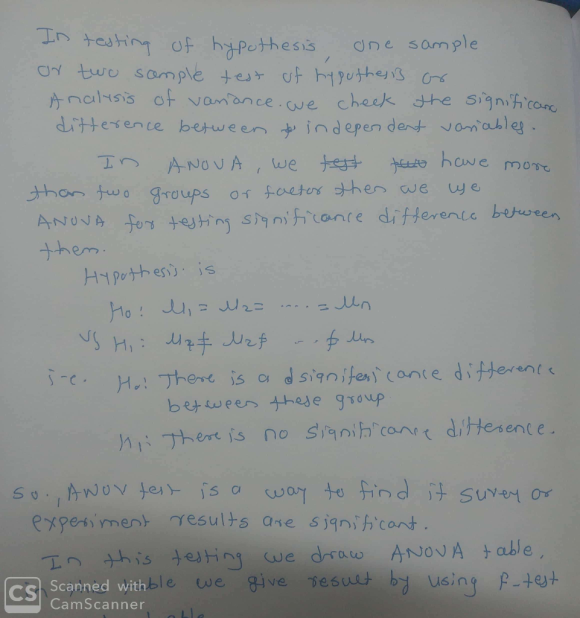 In testing of hypothesis, one sample
or two sample test of hypothesis or
Analysis of variance. we check the significanc
difference between independent variables.
In ANOVA, we test two have more
than two groups or factor then we use
ANOVA for testing significance difference between
them.
Hypothesis is
H₀: μ₁ = μ₂ = .... = μn
VS H₁: μ₂ ≠ μ₂ ≠ .. ≠ μn
i-e. H₀: There is a dsignifesicance difference
between these group
H₁: There is no significance difference.
So., ANOV test is a way to find if survey or
experiment results are significant.
In this testing we draw ANOVA table,
table we give result by using F-test
CS Scanned with
CamScanner